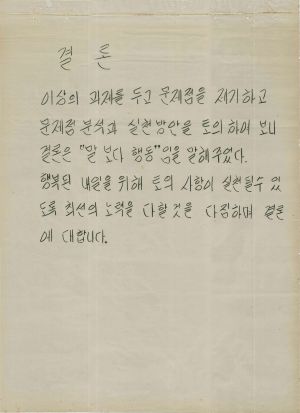 결론
이상의 과제를 두고 문제점을 제기하고
문제점 분석과 실현방안을 토의하여 보니
결론은 "말 보다 행동"임을 말해주었다.
행복된 내일을 위해 토의 사항이 실현될수 있
도록 최선의 노력을 다할것을 다짐하며 결론
에 대합니다.